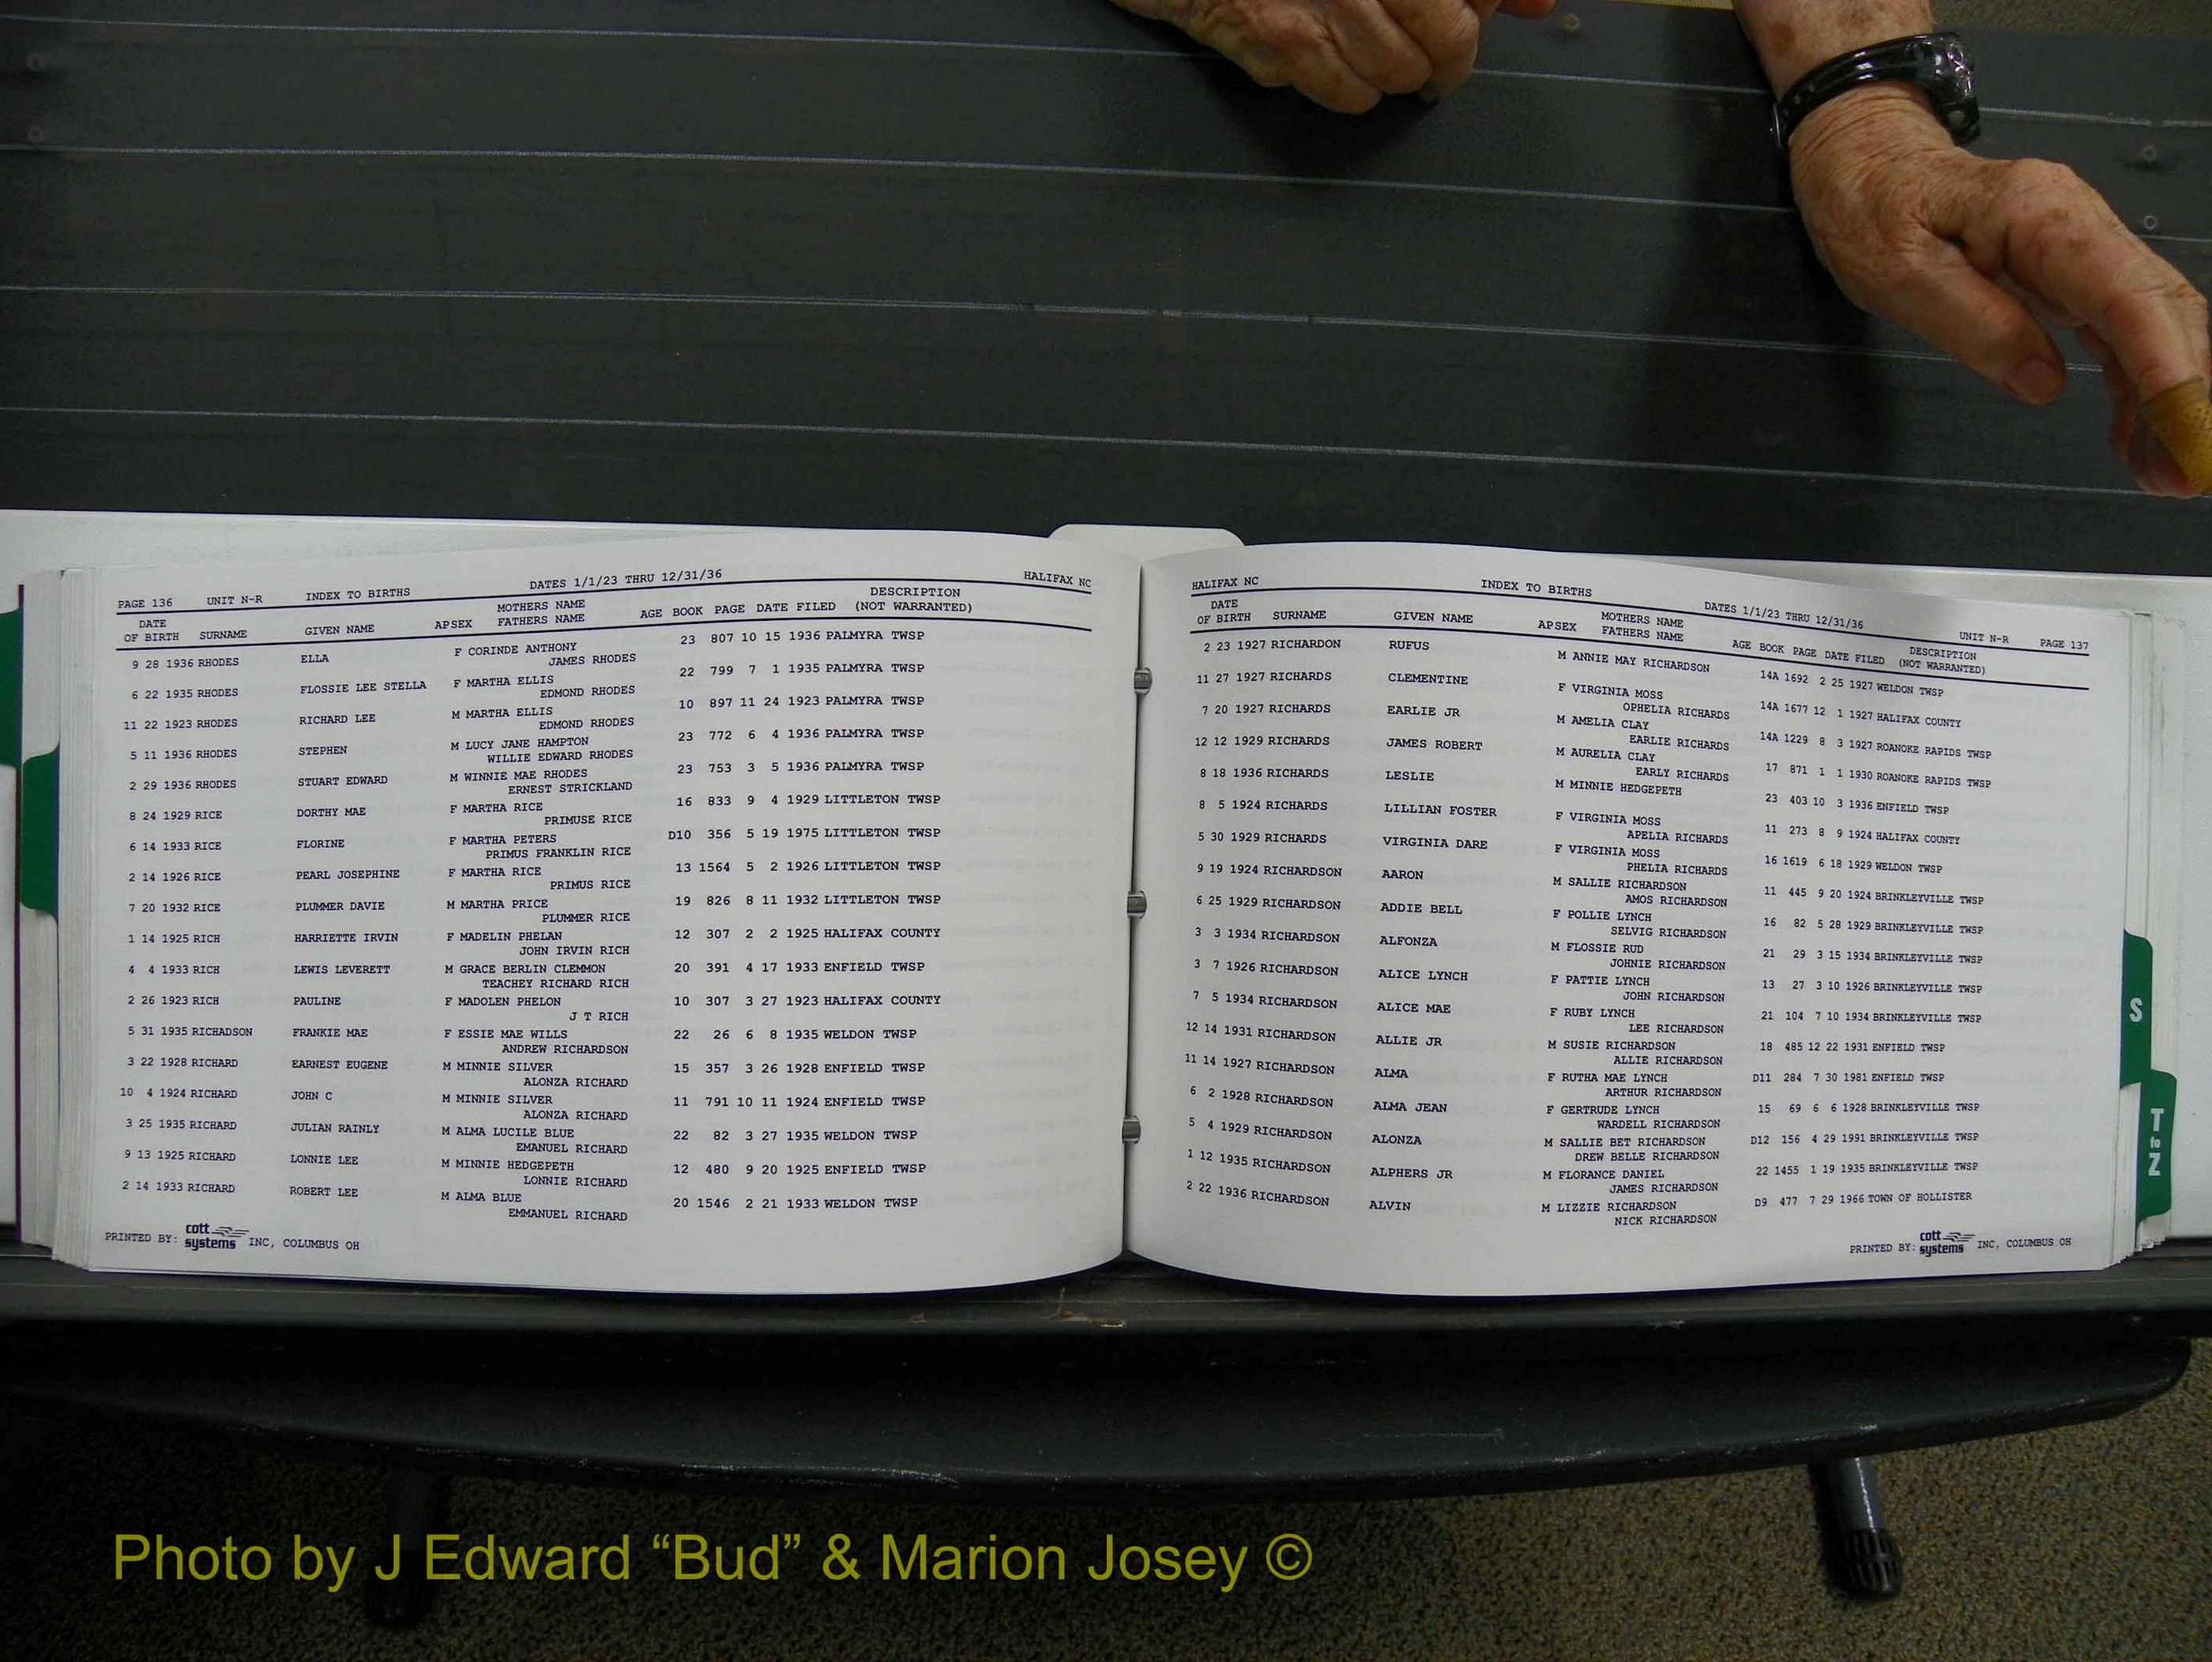 PAGE 136 UNIT N-R INDEX TO BIRTHS DATES 1/1/23 THRU 12/31/36 HALIFAX NC
DATE OF BIRTH SURNAME GIVEN NAME AP SEX MOTHERS NAME FATHERS NAME AGE BOOK PAGE DATE FILED DESCRIPTION (NOT WARRANTED)
9 28 1936 RHODES ELLA F CORINDE ANTHONY 23 807 10 15 1936 PALMYRA TWSP
JAMES RHODES
6 22 1935 RHODES FLOSSIE LEE STELLA F MARTHA ELLIS 22 799 7 1 1935 PALMYRA TWSP
EDMOND RHODES
11 22 1923 RHODES RICHARD LEE M MARTHA ELLIS 10 897 11 24 1923 PALMYRA TWSP
EDMOND RHODES
5 11 1936 RHODES STEPHEN M LUCY JANE HAMPTON 23 772 6 4 1936 PALMYRA TWSP
WILLIE EDWARD RHODES
2 29 1936 RHODES STUART EDWARD M WINNIE MAE RHODES 23 753 3 5 1936 PALMYRA TWSP
ERNEST STRICKLAND
8 24 1929 RICE DORTHY MAE F MARTHA RICE 16 833 9 4 1929 LITTLETON TWSP
PRIMUSE RICE
6 14 1933 RICE FLORINE F MARTHA PETERS D10 356 5 19 1975 LITTLETON TWSP
PRIMUS FRANKLIN RICE
2 14 1926 RICE PEARL JOSEPHINE F MARTHA RICE 13 1564 5 2 1926 LITTLETON TWSP
PRIMUS RICE
7 20 1932 RICE PLUMMER DAVIE M MARTHA PRICE 19 826 8 11 1932 LITTLETON TWSP
PLUMMER RICE
1 14 1925 RICH HARRIETTE IRVIN F MADELIN PHELAN 12 307 2 2 1925 HALIFAX COUNTY
JOHN IRVIN RICH
4 4 1933 RICH LEWIS LEVERETT M GRACE BERLIN CLEMMON 20 391 4 17 1933 ENFIELD TWSP
TEACHEY RICHARD RICH
2 26 1923 RICH PAULINE F MADOLEN PHELON 10 307 3 27 1923 HALIFAX COUNTY
J T RICH
5 31 1935 RICHADSON FRANKIE MAE F ESSIE MAE WILLS 22 26 6 8 1935 WELDON TWSP
ANDREW RICHARDSON
3 22 1928 RICHARD EARNEST EUGENE M MINNIE SILVER 15 357 3 26 1928 ENFIELD TWSP
ALONZA RICHARD
10 4 1924 RICHARD JOHN C M MINNIE SILVER 11 791 10 11 1924 ENFIELD TWSP
ALONZA RICHARD
3 25 1935 RICHARD JULIAN RAINLY M ALMA LUCILE BLUE 22 82 3 27 1935 WELDON TWSP
EMANUEL RICHARD
9 13 1925 RICHARD LONNIE LEE M MINNIE HEDGEPETH 12 480 9 20 1925 ENFIELD TWSP
LONNIE RICHARD
2 14 1933 RICHARD ROBERT LEE M ALMA BLUE 20 1546 2 21 1933 WELDON TWSP
EMMANUEL RICHARD
PRINTED BY: cott systems INC, COLUMBUS OH
HALIFAX NC INDEX TO BIRTHS DATES 1/1/23 THRU 12/31/36 UNIT N-R PAGE 137
DATE OF BIRTH SURNAME GIVEN NAME AP SEX MOTHERS NAME FATHERS NAME AGE BOOK PAGE DATE FILED DESCRIPTION (NOT WARRANTED)
2 23 1927 RICHARDON RUFUS M ANNIE MAY RICHARDSON 14A 1692 2 25 1927 WELDON TWSP
11 27 1927 RICHARDS CLEMENTINE F VIRGINIA MOSS 14A 1677 12 1 1927 HALIFAX COUNTY
OPHELIA RICHARDS
7 20 1927 RICHARDS EARLIE JR M AMELIA CLAY 14A 1229 8 3 1927 ROANOKE RAPIDS TWSP
EARLIE RICHARDS
12 12 1929 RICHARDS JAMES ROBERT M AURELIA CLAY 17 871 1 1 1930 ROANOKE RAPIDS TWSP
EARLY RICHARDS
8 18 1936 RICHARDS LESLIE M MINNIE HEDGEPETH 23 403 10 3 1936 ENFIELD TWSP
8 5 1924 RICHARDS LILLIAN FOSTER F VIRGINIA MOSS 11 273 8 9 1924 HALIFAX COUNTY
APELIA RICHARDS
5 30 1929 RICHARDS VIRGINIA DARE F VIRGINIA MOSS 16 1619 6 18 1929 WELDON TWSP
PHELIA RICHARDS
9 19 1924 RICHARDSON AARON M SALLIE RICHARDSON 11 445 9 20 1924 BRINKLEYVILLE TWSP
AMOS RICHARDSON
6 25 1929 RICHARDSON ADDIE BELL F POLLIE LYNCH 16 82 5 28 1929 BRINKLEYVILLE TWSP
SELVIG RICHARDSON
3 3 1934 RICHARDSON ALFONZA M FLOSSIE RUD 21 29 3 15 1934 BRINKLEYVILLE TWSP
JOHNIE RICHARDSON
3 7 1926 RICHARDSON ALICE LYNCH F PATTIE LYNCH 13 27 3 10 1926 BRINKLEYVILLE TWSP
JOHN RICHARDSON
7 5 1934 RICHARDSON ALICE MAE F RUBY LYNCH 21 104 7 10 1934 BRINKLEYVILLE TWSP
LEE RICHARDSON
12 14 1931 RICHARDSON ALLIE JR M SUSIE RICHARDSON 18 485 12 22 1931 ENFIELD TWSP
ALLIE RICHARDSON
11 14 1927 RICHARDSON ALMA F RUTHA MAE LYNCH D11 284 7 30 1981 ENFIELD TWSP
ARTHUR RICHARDSON
6 2 1928 RICHARDSON ALMA JEAN F GERTRUDE LYNCH 15 69 6 6 1928 BRINKLEYVILLE TWSP
WARDELL RICHARDSON
5 4 1929 RICHARDSON ALONZA M SALLIE BET RICHARDSON D12 156 4 29 1991 BRINKLEYVILLE TWSP
DREW BELLE RICHARDSON
1 12 1935 RICHARDSON ALPHERS JR M FLORANCE DANIEL 22 1455 1 19 1935 BRINKLEYVILLE TWSP
JAMES RICHARDSON
2 22 1936 RICHARDSON ALVIN M LIZZIE RICHARDSON D9 477 7 29 1966 TOWN OF HOLLISTER
NICK RICHARDSON
PRINTED BY: cott systems INC, COLUMBUS OH
S
T to Z
Photo by J Edward “Bud” & Marion Josey ©